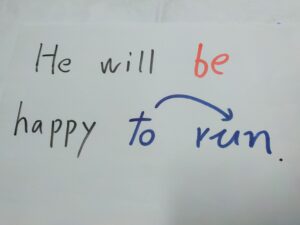 He will be
happy to run.